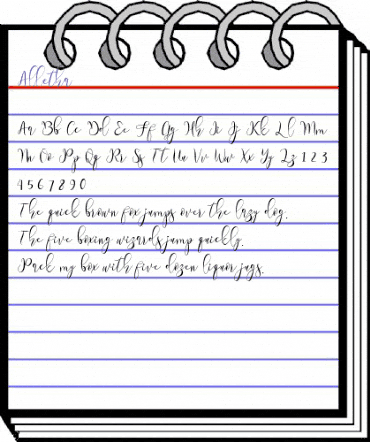 Alletha
Aa Bb Cc Dd Ee Ff Gg Hh Ii Jj Kk Ll Mm
Nn Oo Pp Qq Rr Ss Tt Uu Vv Ww Xx Yy Zz 1 2 3
4 5 6 7 8 9 0
The quick brown fox jumps over the lazy dog.
The five boxing wizards jump quickly.
Pack my box with five dozen liquor jugs.